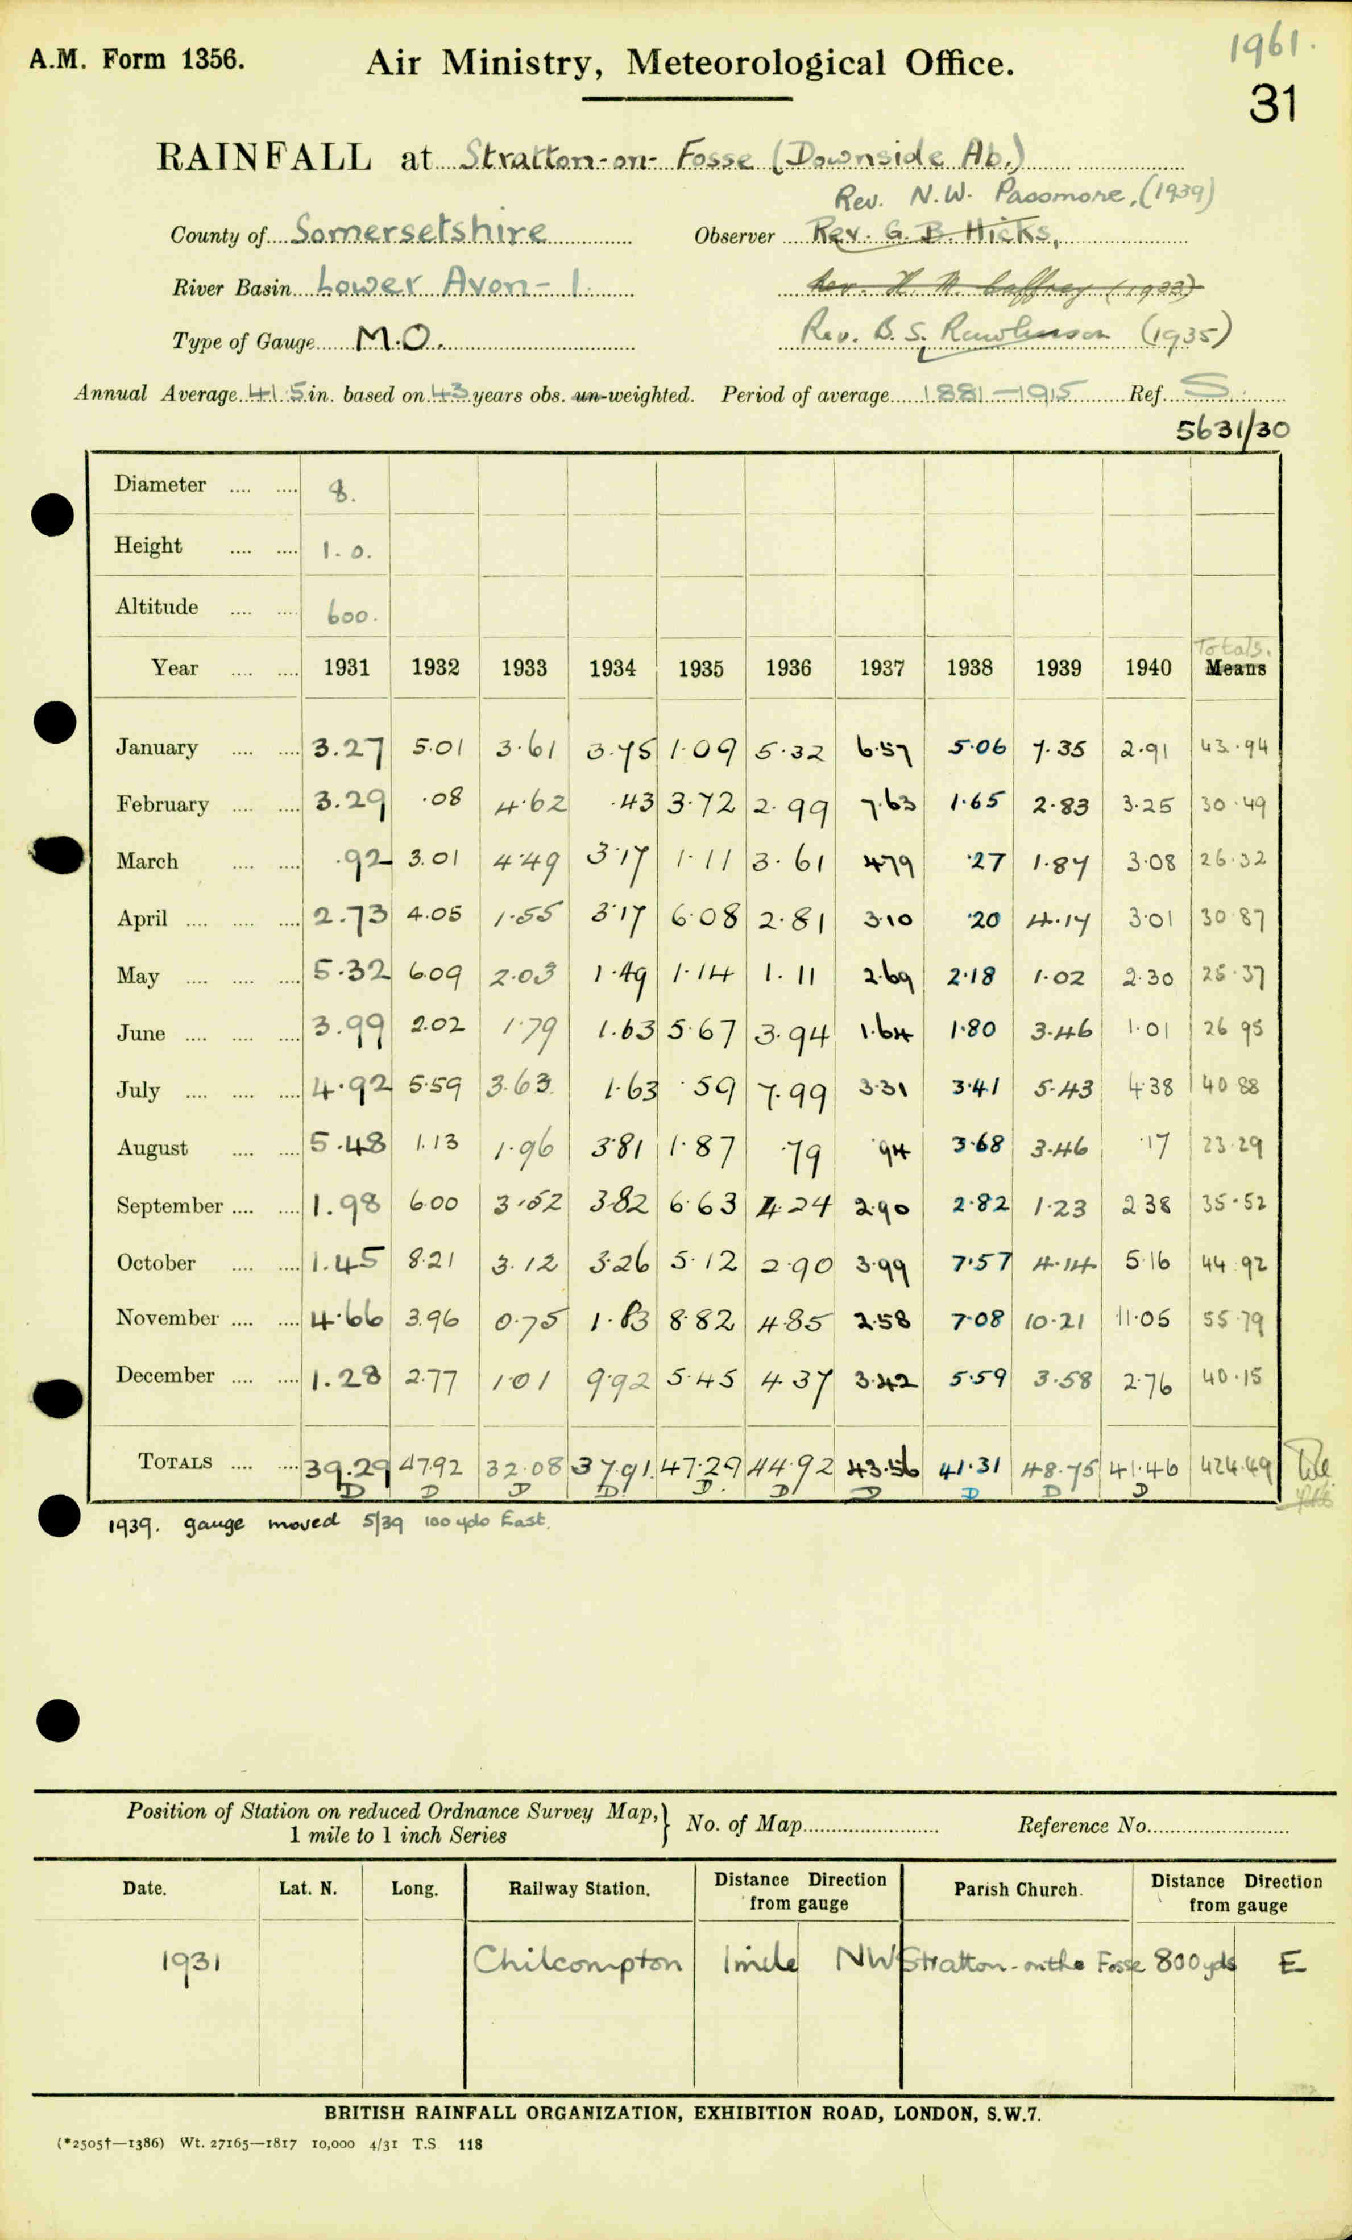 1961.
A.M. Form 1356. Air Ministry, Meteorological Office.
31
RAINFALL at Stratton-on-Fosse (Downside Ab.)
Rev. N.W. Passmore, (1939)
County of Somersetshire Observer Rev. G. B. Hicks,
River Basin Lower Avon - 1. Rev. H. M. Caffrey (1933)
Type of Gauge M.O. Rev. B. S. Rawlinson (1935)
Annual Average 41.5 in. based on 43 years obs. un-weighted. Period of average 1881-1915 Ref. S.
5631/30
Diameter 8.
Height 1.0.
Altitude 600.
Totals.
Year 1931 1932 1933 1934 1935 1936 1937 1938 1939 1940 Means
January 3.27 5.01 3.61 3.75 1.09 5.32 6.57 5.06 7.35 2.91 43.94
February 3.29 .08 4.62 .43 3.72 2.99 7.63 1.65 2.83 3.25 30.49
March .92 3.01 4.49 3.17 1.11 3.61 4.79 .27 1.87 3.08 26.32
April 2.73 4.05 1.55 3.17 6.08 2.81 3.10 .20 4.17 3.01 30.87
May 5.32 6.09 2.03 1.49 1.14 1.11 2.69 2.18 1.02 2.30 25.37
June 3.99 2.02 1.79 1.63 5.67 3.94 1.64 1.80 3.46 1.01 26.95
July 4.92 5.59 3.63 1.63 .59 7.99 3.31 3.41 5.43 4.38 40.88
August 5.48 1.13 1.96 3.81 1.87 .79 .94 3.68 3.46 .17 23.29
September 1.98 6.00 3.52 3.82 6.63 4.24 2.90 2.82 1.23 2.38 35.52
October 1.45 8.21 3.12 3.26 5.12 2.90 3.99 7.57 4.14 5.16 44.92
November 4.66 3.96 0.75 1.83 8.82 4.85 2.58 7.08 10.21 11.05 55.79
December 1.28 2.77 1.01 9.92 5.45 4.37 3.42 5.59 3.58 2.76 40.15
TOTALS 39.29 47.92 32.08 37.91 47.29 44.92 43.56 41.31 48.75 41.46 424.49
D D D D D D D D D D
1939. gauge moved 5/39 100 yds East.
Position of Station on reduced Ordnance Survey Map, } No. of Map Reference No.
1 mile to 1 inch Series
Date. Lat. N. Long. Railway Station. Distance Direction from gauge Parish Church. Distance Direction from gauge
1931 Chilcompton 1 mile NW Stratton-on the Fosse 800 yds E
BRITISH RAINFALL ORGANIZATION, EXHIBITION ROAD, LONDON, S.W.7.
(*2505†—1386) Wt. 27165—1817 10,000 4/31 T.S 118